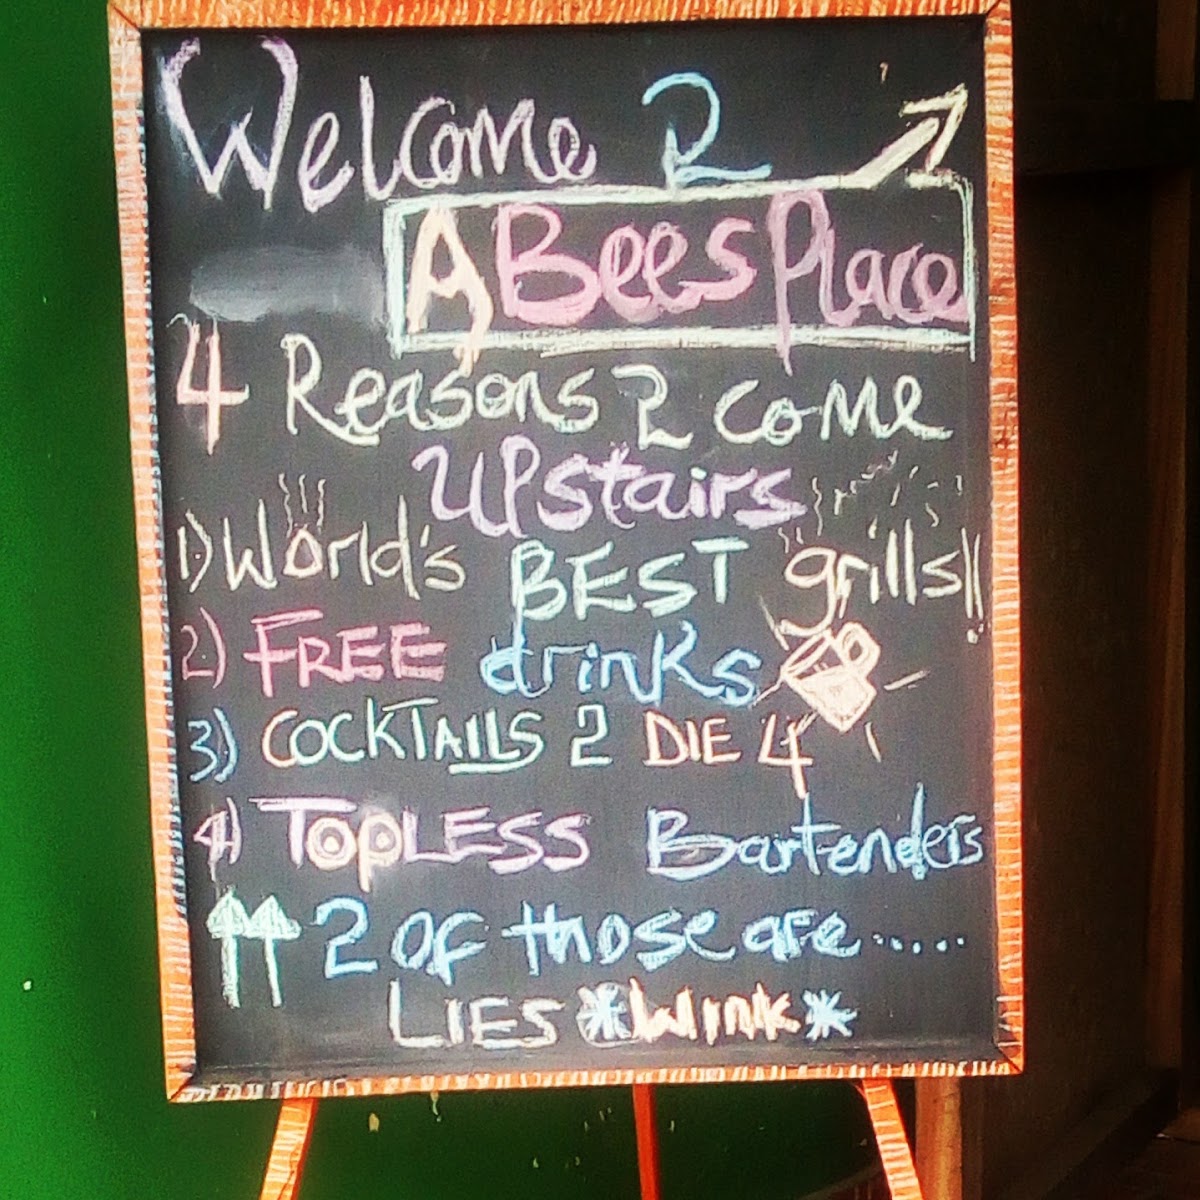 Welcome 2
A Bees Place
4 Reasons 2 come
Upstairs
1) World's BEST grills!!
2) FREE drinks
3) COCKTAILS 2 DIE 4
4) TOPLESS Bartenders
2 of those are.....
LIES *Wink*